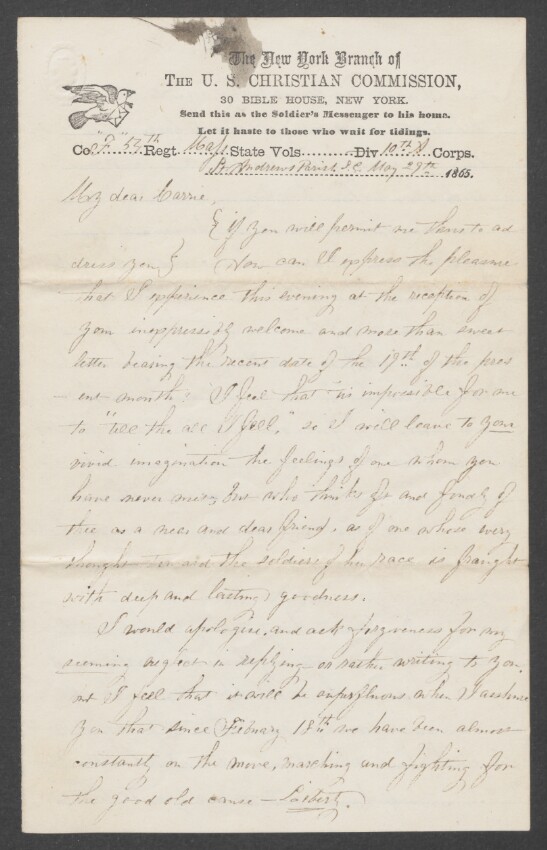 The New York Branch of
THE U. S. CHRISTIAN COMMISSION,
30 BIBLE HOUSE, NEW YORK.
Send this as the Soldier's Messenger to his home.
Let it haste to those who wait for tidings.
Co. "F" 55th Regt Mass State Vols Div 10th A Corps.
St. Andrews Parish S.C. May 29th 1865.
My dear Carrie,
{if you will permit me thus to ad
dress you} How can I express the pleasure
that I experience this evening at the reception of
your inexpressibly welcome and more than sweet
letter bearing the recent date of the 19th of the pres
ent month? I feel that 'tis impossible for me
to "tell the all I feel," so I will leave to your
vivid imagination the feelings of one whom you
have never seen, but who thinks of and fondly of
thee as a near and dear friend, as of one whose every
thought toward the soldiers of her race is fraught
with deep and lasting goodness.
I would apologise and ask forgiveness for my
seeming neglect in replying or rather writing to you,
but I feel that it will be superfluous when I assure
you that since Febuary 18th we have been almost
constantly on the move, marching and fighting for
the good old cause - Liberty.